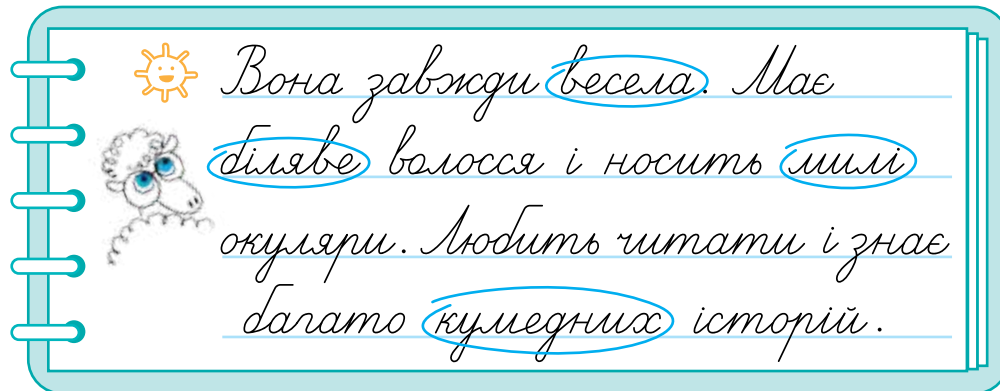 Вона завжди весела. Має
біляве волосся і носить милі
окуляри. Любить читати і знає
багато кумедних історій.